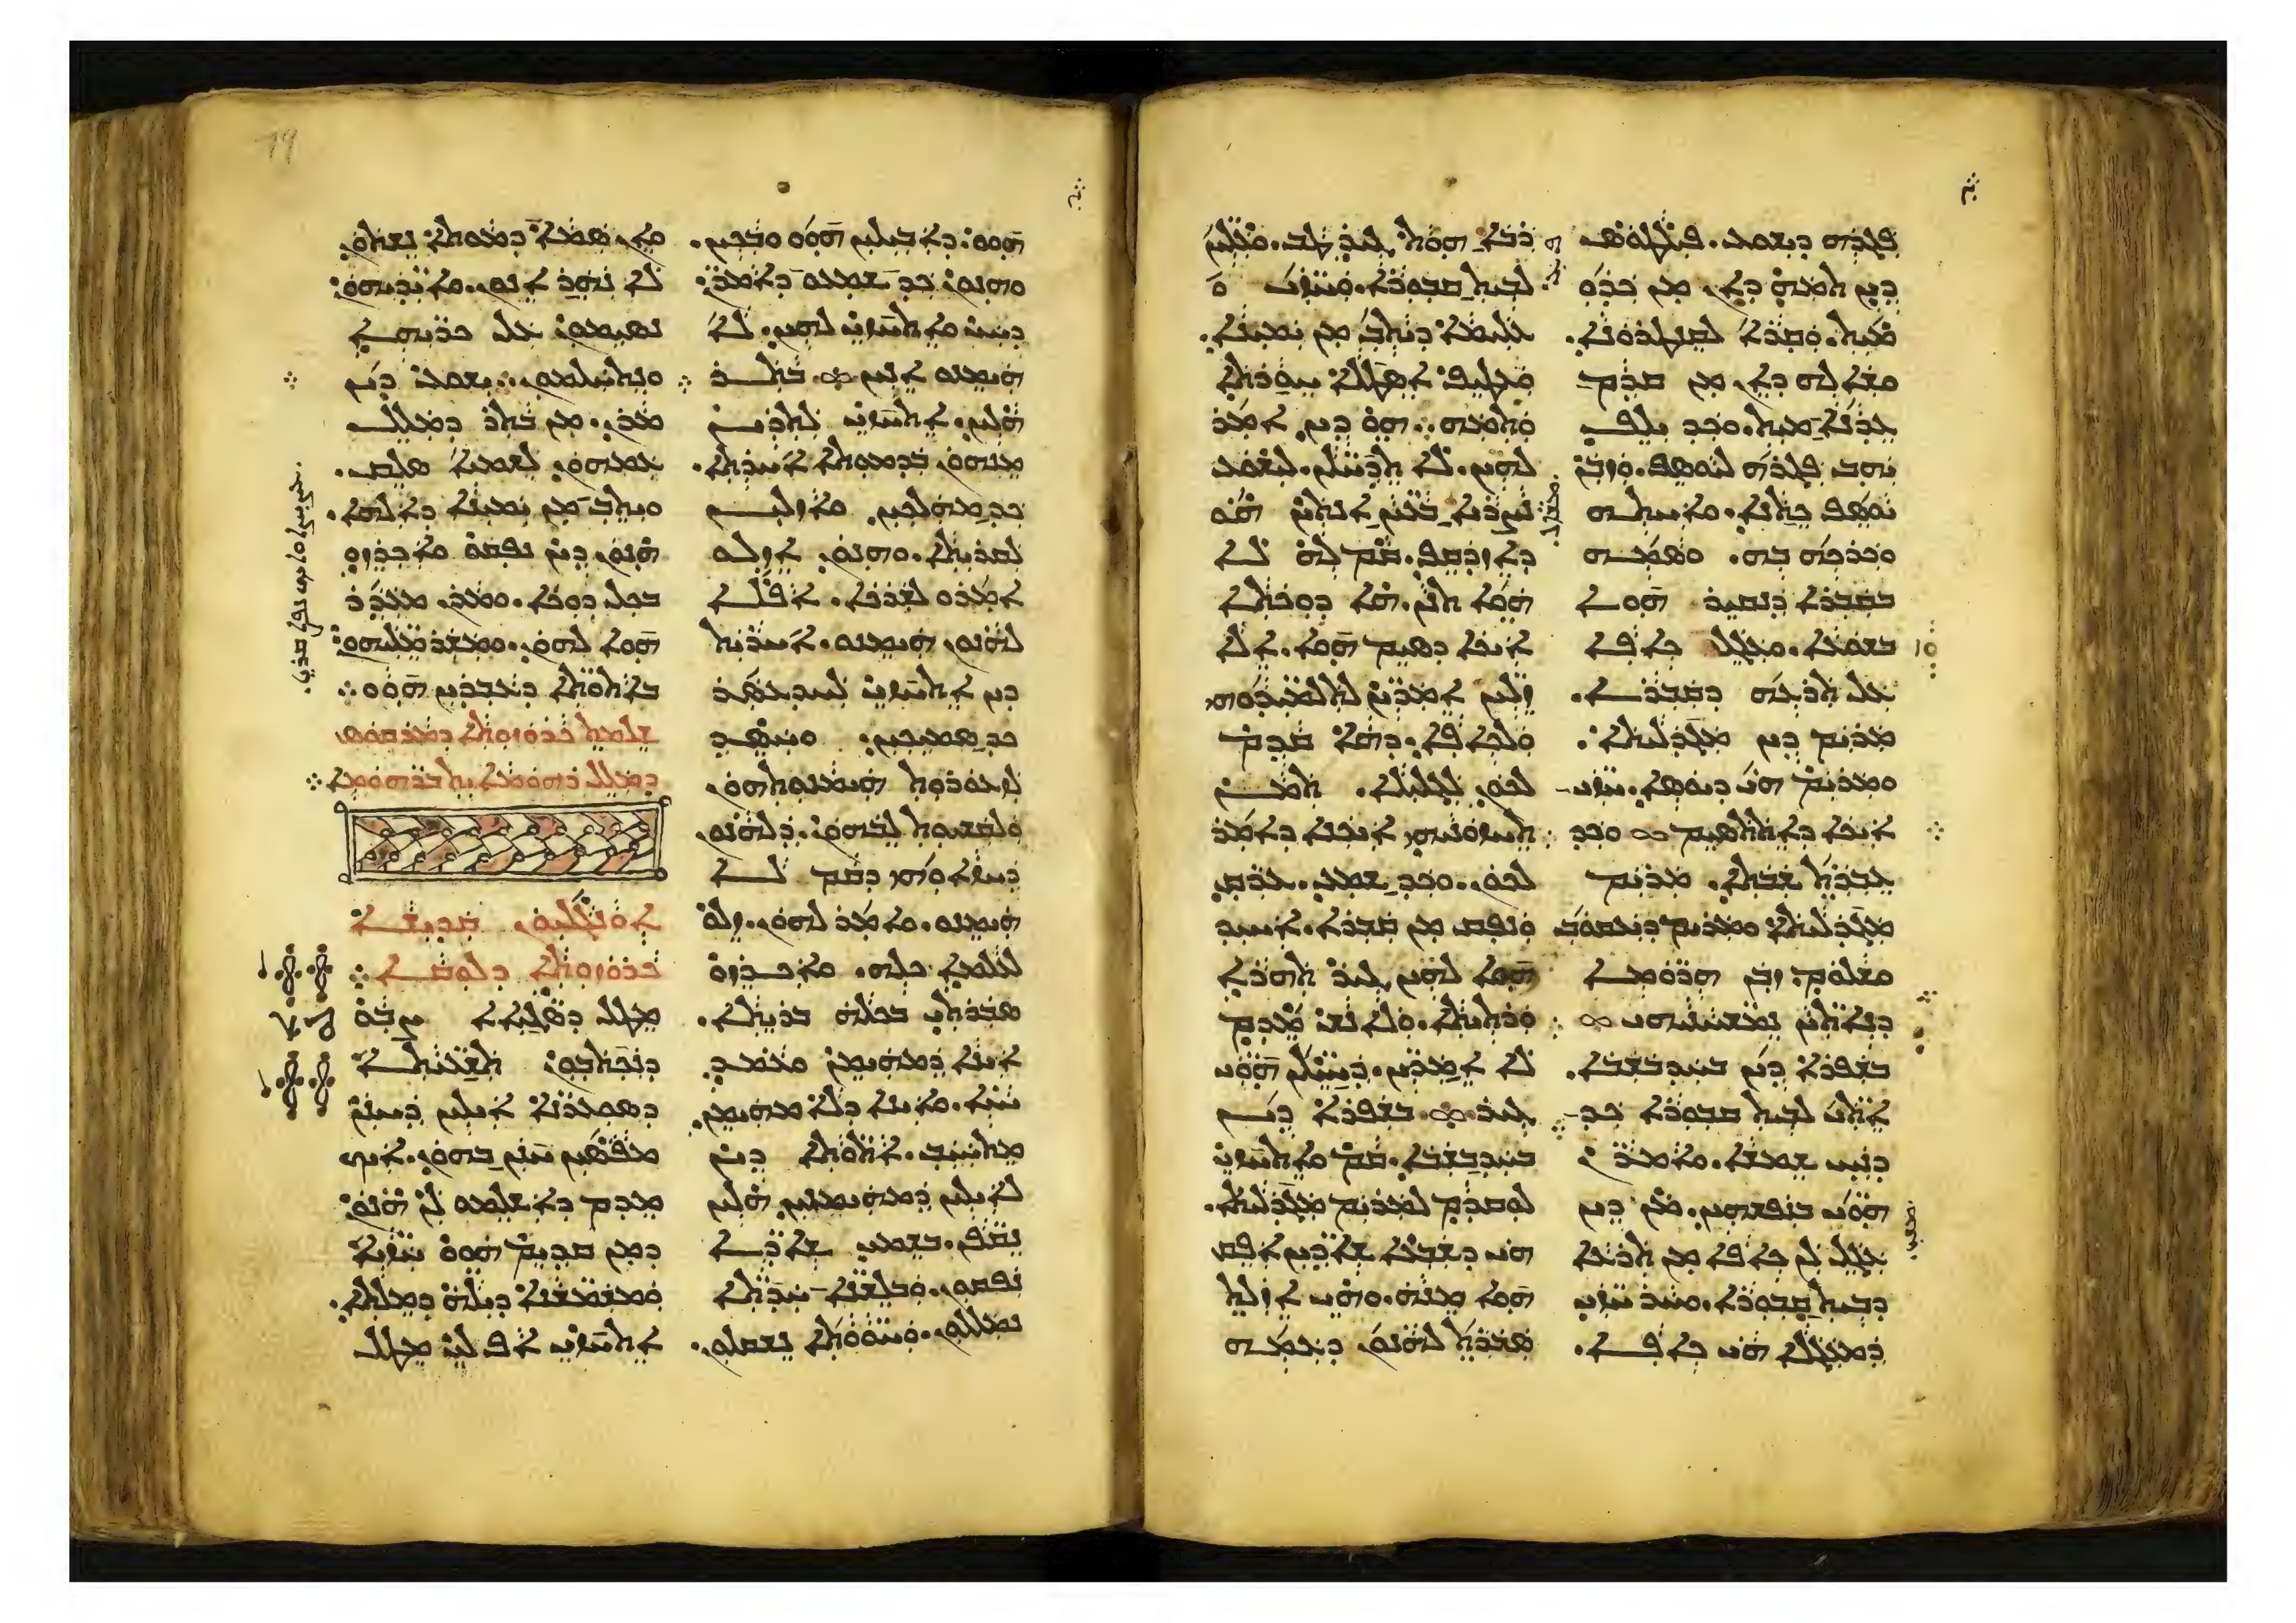 ܦܓܪܗ ܕܝܫܘܥ. ܦܝܠܛܘܣ
ܕܝܢ ܬܡܗ ܕܐܢ ܡܢ ܟܕܘ
ܡܝܬ. ܘܩܪܐ ܠܩܢܛܪܘܢܐ.
ܘܫܐܠܗ ܕܐܢ ܡܢ ܩܕܡ
ܥܕܢܐ ܡܝܬ. ܘܟܕ ܝܠܦ
ܝܗܒ ܦܓܪܗ ܠܝܘܣܦ. ܘܙܒܢ
ܝܘܣܦ ܟܬܢܐ. ܘܐܚܬܗ
ܘܟܪܟܗ ܒܗ. ܘܣܡܗ
ܒܩܒܪܐ ܕܢܩܝܪ ܗܘܐ
ܒܫܘܥܐ. ܘܥܓܠ ܟܐܦܐ
ܥܠ ܬܪܥܗ ܕܩܒܪܐ.
ܡܪܝܡ ܕܝܢ ܡܓܕܠܝܬܐ.
ܘܡܪܝܡ ܗܝ ܕܝܘܣܐ. ܚܙܝ̈
ܐܝܟܐ ܕܐܬܬܣܝܡ ܘܟܕ
ܥܒܪܬ ܫܒܬܐ. ܡܪܝܡ
ܡܓܕܠܝܬܐ ܘܡܪܝܡ ܕܝܥܩܘܒ
ܘܫܠܘܡ. ܙܒܢ ܗܪ̈ܘܡܐ
ܕܢܐܬܝ̈ܢ ܢܡܫܚܢܝܗܝ
ܒܫܦܪܐ ܕܝܢ ܒܚܕܒܫܒܐ.
ܐܬܝ̈ ܠܒܝܬ ܩܒܘܪܐ ܟܕ
ܕܢܚ ܫܡܫܐ. ܘܐܡܪ̈ܢ
ܗܘ̈ܝ ܒܢܦܫܗܝܢ. ܡܢ ܕܝܢ
ܥܓܠ ܠܢ ܟܐܦܐ ܡܢ ܬܪܥܐ
ܕܒܝܬ ܩܒܘܪܐ. ܘܚܪ ܚܙܝ̈
ܕܡܥܓܠܐ ܗܝ ܟܐܦܐ.
ܪܒܐ ܗܘܬ ܓܝܪ ܛܒ. ܘܥ̈ܠܝܢ
ܠܒܝܬ ܩܒܘܪܐ. ܘܚܙ̈ܝ
ܥܠܝܡܐ ܕܝܬܒ ܡܢ ܝܡܝܢܐ.
ܘܥܛܝܦ ܐܣܛܠܐ ܚܘܪܬܐ
ܘܬܡܗ. ܗܘ ܕܝܢ ܐܡܪ
ܠܗܝܢ. ܠܐ ܬܕܚ̈ܠܢ. ܠܝܫܘܥ
ܢܨܪܝܐ ܒܥ̈ܝܢ ܐܢܬܝܢ ܗܘ
ܕܐܙܕܩܦ. ܩܡ ܠܗ ܠܐ
ܗܘܐ ܬܢܢ. ܗܐ ܕܘܟܬܐ
ܐܝܟܐ ܕܣܝܡ ܗܘܐ. ܐܠܐ
ܙ̈ܠܝܢ ܐܡܪ̈ܝܢ ܠܬܠܡܝܕ̈ܘܗܝ
ܘܠܟܐܦܐ. ܕܗܐ ܩܕܡ
ܠܟܘܢ ܠܓܠܝܠܐ. ܬܡܢ
ܬܚܙܘܢܝܗܝ ܐܝܟܢܐ ܕܐܡܪ
ܠܟܘܢ. ܘܟܕ ܫܡܥ. ܥܪ̈ܩ
ܘܢܦܩ ܡܢ ܩܒܪܐ. ܐܚܝܕ
ܗܘܐ ܠܗܝܢ ܓܝܪ ܬܗܪܐ
ܘܪܬܝܬܐ. ܘܠܐܢܫ ܡܕܡ
ܠܐ ܐܡܪ̈ܝܢ. ܕܚ̈ܝܠܢ ܗܘ̈ܝ
ܓܝܪ ܒܫܦܪܐ ܕܝܢ
ܒܚܕܒܫܒܐ. ܩܡ ܘܐܬܚܙܝ
ܠܘܩܕܡ ܠܡܪܝܡ ܡܓܕܠܝܬܐ.
ܗܝ ܕܫܒܥܐ ܫܐܕ̈ܝܢ ܐܦܩ
ܗܘܐ ܡܢܗ. ܘܗܝ ܐܙܠܬ
ܣܒܪܬ ܠܗܢܘܢ ܕܥܡܗ
ܗܘܘ. ܕܐܒܝܠܝܢ ܗܘܘ ܘܒܟܝܢ.
ܘܗܢܘܢ ܟܕ ܫܡܥܘ ܕܐܡܪ̈ܢ
ܕܚܝ ܘܐܬܚܙܝ ܠܗܝܢ. ܠܐ
ܗܝܡܢܘ ܐܢܝܢ ܒܬܪ
ܗܠܝܢ. ܐܬܚܙܝ ܠܬܪܝܢ
ܡܢܗܘܢ ܒܕܡܘܬܐ ܐܚܪܬܐ.
ܟܕ ܡܗܠܟܝܢ ܘܐܙܠܝܢ
ܠܩܪܝܬܐ. ܘܗܢܘܢ ܐܙܠܘ
ܐܡܪܘ ܠܫܪܟܐ. ܐܦܠܐ
ܠܗܢܘܢ ܗܝܡܢܘ. ܐܚܪܝܬ
ܕܝܢ ܐܬܚܙܝ ܠܚܕܥܣܪ
ܟܕ ܣܡܝܟܝܢ. ܘܚܣܕ
ܠܚܣܝܪܘܬ ܗܝܡܢܘܬܗܘܢ
ܘܠܩܫܝܘܬ ܠܒܗܘܢ. ܕܠܗܢܘܢ
ܕܚܙܐܘܗܝ ܕܩܡ ܠܐ
ܗܝܡܢܘ. ܘܐܡܪ ܠܗܘܢ. ܙܠܘ
ܠܥܠܡܐ ܟܠܗ. ܘܐܟܪܙܘ
ܣܒܪܬܝ ܒܟܠܗ ܒܪܝܬܐ.
ܐܝܢܐ ܕܡܗܝܡܢ ܘܥܡܕ
ܚܝ̈ܐ. ܘܐܝܢܐ ܕܠܐ ܡܗܝܡܢ
ܡܬܚܝܒ. ܐܬܘ̈ܬܐ ܕܝܢ
ܠܐܝܠܝܢ ܕܡܗܝܡܢܝܢ ܗܠܝܢ
ܢܩ̈ܦܢ. ܒܫܡܝ ܫܐܕ̈ܐ
ܢܦܩܘܢ. ܘܒܠܫ̈ܢܐ ܚܕ̈ܬܐ
ܢܡܠܠܘܢ. ܘܚܘ̈ܘܬܐ ܢܫܩܠܘܢ.
ܘܐܢ ܣܡܐ ܕܡܘܬܐ ܢܫܬܘܢ
ܠܐ ܢܗܪ ܐܢܘܢ. ܘܐܝܕ̈ܝܗܘܢ
ܢܣܝܡܘܢ ܥܠ ܟܪ̈ܝܗܐ
ܘܢܬܚܠܡܘܢ. ܝܫܘܥ ܕܝܢ
ܡܪܢ. ܡܢ ܒܬܪ ܕܡܠܠ
ܥܡܗܘܢ ܠܫܡܝܐ ܣܠܩ.
ܘܝܬܒ ܡܢ ܝܡܝܢܐ ܕܐܠܗܐ.
ܗܢܘܢ ܕܝܢ ܢܦܩܘ ܘܐܟܪܙܘ
ܒܟܠ ܕܘܟܐ. ܘܡܪܢ ܡܥܕܪ
ܗܘܐ ܠܗܘܢ. ܘܡܫܪܪ ܡܠ̈ܝܗܘܢ
ܒܐܬܘ̈ܬܐ ܕܥܒܕܝܢ ܗܘܘ
ܫܠܡܬ ܟܪܘܙܘܬܐ ܕܡܪܩܘܣ
ܕܡܠܠ ܪܗܘܡܐܝܬ ܒܪܗܘܡܐ
ܐܘܢܓܠܝܘܢ ܩܕܝܫܐ
ܟܪܘܙܘܬܐ ܕܠܘܩܐ
ܡܛܠ ܕܣܓܝ̈ܐܐ ܨܒܘ
ܕܢܟܬܒܘܢ ܬܫܥܝܬܐ
ܕܣܘܥܪ̈ܢܐ ܐܝܠܝܢ ܕܚܢܢ
ܡܦܣܝܢ ܚܢܢ ܒܗܘܢ. ܐܝܟ
ܡܕܡ ܕܐܫܠܡܘ ܠܢ ܗܢܘܢ
ܕܡܢ ܩܕܝܡ ܗܘܘ ܚܙܝ̈ܐ
ܘܡܫܡ̈ܫܢܐ ܕܝܠܗ ܕܡܠܬܐ.
ܐܬܚܙܝ ܐܦ ܠܝ ܡܛܠ